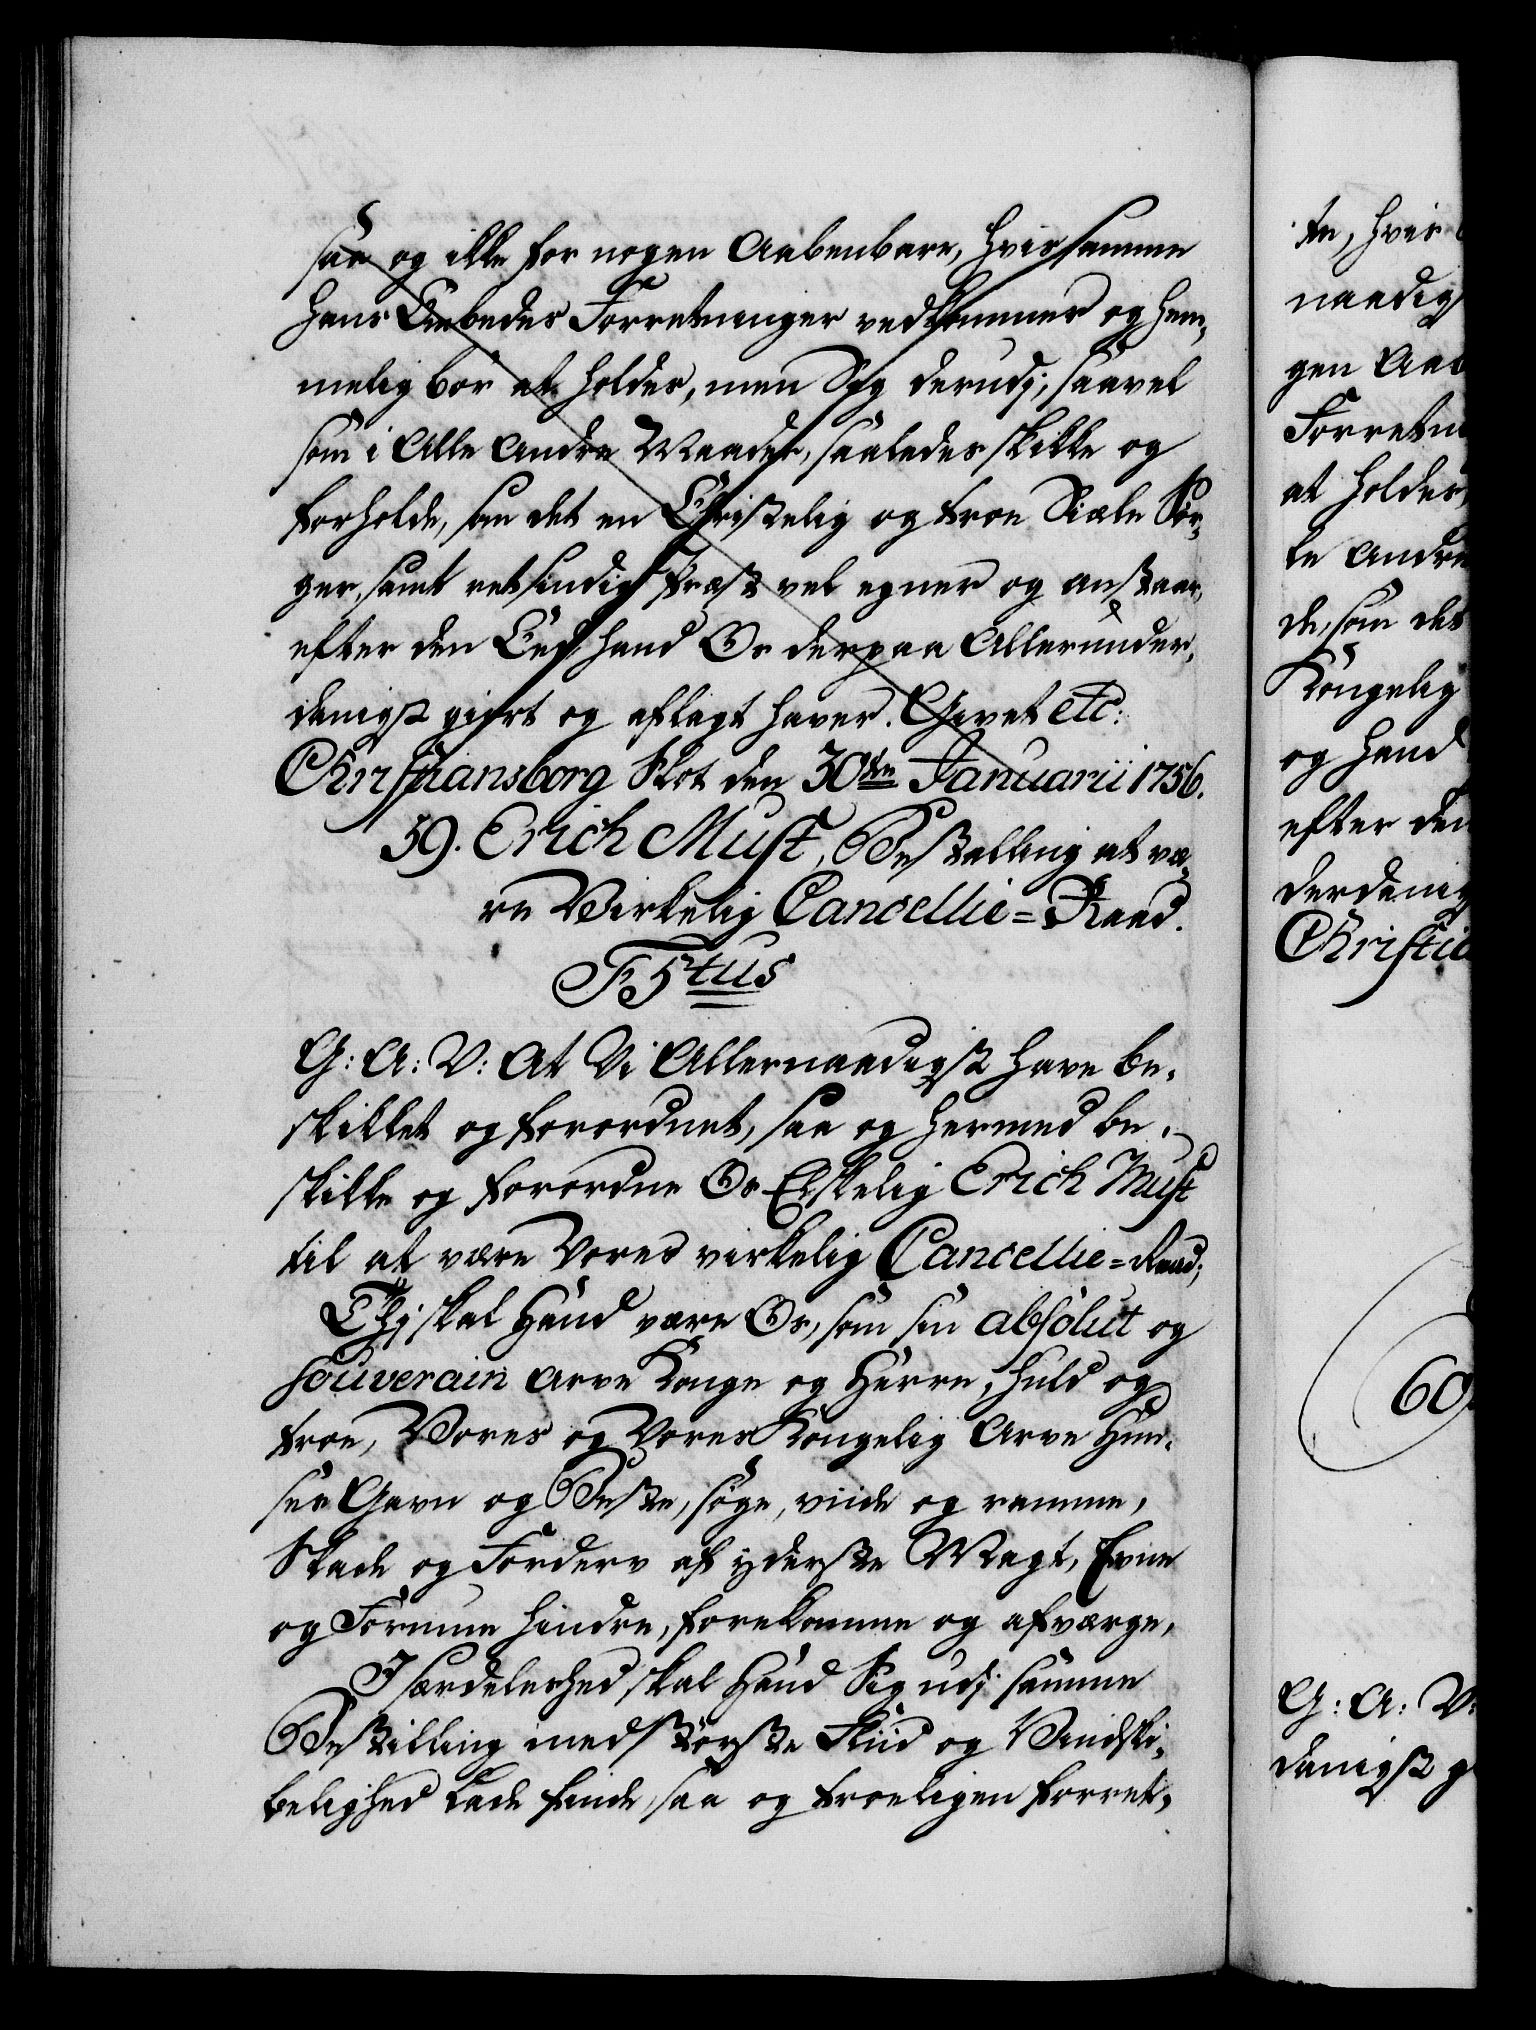 saa og ikke for nogen Aabenbare, hvis samme
hans Embedes Forretninger vedkommer og hem,
melig bör at holdes, men Sig derudj, saavel
som i Alle Andre Maader, saaledes skikke og
forholde, som det en Christelig og troe Siæle Sör,
ger, samt retsindig Præst vel egner og anstaar,
efter den Eed, hand Os derpaa Allerunder,
danigst giort og aflagt haver. Givet etc:
Christiansborg Slot den 30te Januarii 1756.
59. Erich Must, Bestalling at væ,
re Virkelig Cancellie=Raad.
F 5tus
G: A: V: At Vi Allernaadigst have be,
skikket og forordnet, saa og hermed be,
skikke og forordne Os Elskelig Erich Must
til at være Vores virkelig Cancellie=Raad;
Thj skal Hand være Os, som sin absolut og
souverain Arve Konge og Herre, huld og
troe, Vores og Vores Kongelig Arve Huu,
ses Gavn og Beste, söge, viide og ramme,
Skade og Forderv af yderste Magt, Evne
og Formue hindre, forekomme og afværge,
I særdeleshed skal Hand Sig udj samme
Bestilling med störste Fliid og Vindski,
belighed lade finde, saa og troeligen forret,
te, hvis
naadigs
gen Aab
Forretn
at holdes,
le Andre
de, som det
Kongelig
og hand
efter den
derdanig
Christia
60.
G: A: V:
danigst g